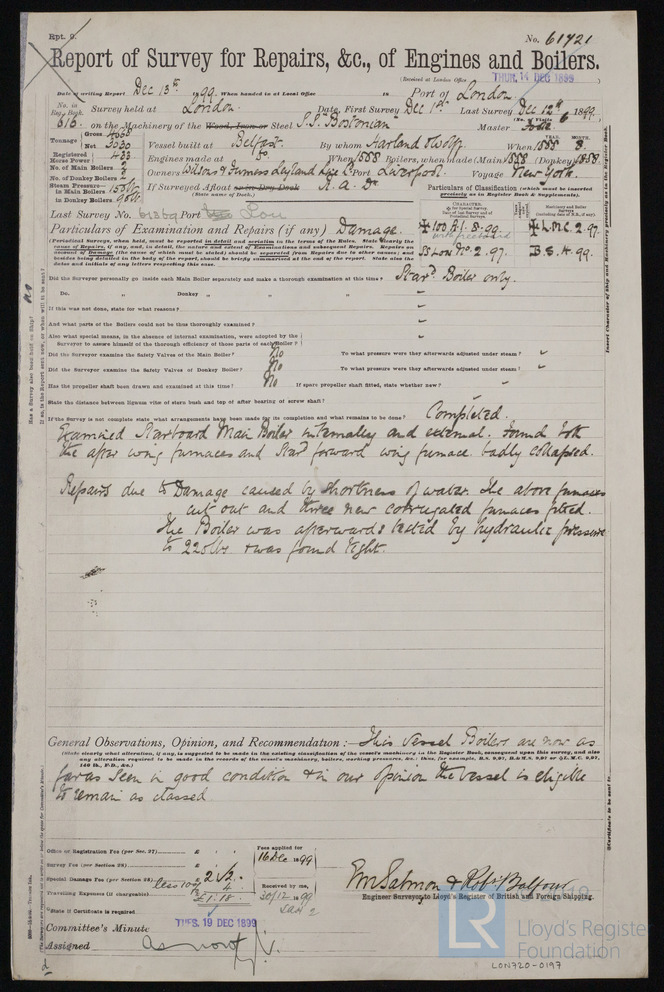 Rpt. 9.
No. 61721
Report of Survey for Repairs, &c., of Engines and Boilers.
(Received at London Office THUR. 14 DEC 1899)
Date of writing Report Dec 13th 1899. When handed in at Local Office in Port of London.
No. in Reg. Book. 616 Survey held at London. Date, First Survey Dec 1st Last Survey Dec 12th 1899.
(No. of Visits 6)
on the Machinery of the Wood, Iron or Steel S.S. Bostonian Master
Tonnage Gross Net 3030 Vessel built at Belfast. By whom Harland & Wolff. When 1888 YEAR. MONTH. 8.
Registered Horse Power 433 Engines made at Do When 1888 Boilers, when made (Main) 1888 (Donkey) 1888.
No. of Main Boilers 2
No. of Donkey Boilers 2 Owners Wilsons & Furness Leyland Line Ld. Port Liverpool. Voyage New York.
Steam Pressure—
in Main Boilers
in Donkey Boilers If Surveyed Afloat or in Dry Dock R. A. Dk
(State name of Dock.)
Particulars of Classification (which must be inserted precisely as in Register Book & Supplements).
Last Survey No. 61369 Port Lon
CHARACTER.
Machinery and Boiler Surveys
Particulars of Examination and Repairs (if any) Damage.
100 A1. 8.99. L.M.C. 2.97.
SS Lon No. 2.97. B.S. 4.99.
Did the Surveyor personally go inside each Main Boiler separately and make a thorough examination at this time? Starbd Boiler only.
Do. „ Donkey „ „ „
If this was not done, state for what reasons?
And what parts of the Boilers could not be thus thoroughly examined?
Also what special means, in the absence of internal examination, were adopted by the
Surveyor to assure himself of the thorough efficiency of those parts of each Boiler?
Did the Surveyor examine the Safety Valves of the Main Boiler? No To what pressure were they afterwards adjusted under steam? "
Did the Surveyor examine the Safety Valves of Donkey Boiler? No To what pressure were they afterwards adjusted under steam? "
Has the propeller shaft been drawn and examined at this time? No If spare propeller shaft fitted, state whether new? "
State the distance between lignum vitæ of stern bush and top of after bearing of screw shaft?
If the Survey is not complete state what arrangements have been made for its completion and what remains to be done? Completed.
Examined Starboard Main Boiler internalley and external. Found both
the after wing furnaces and Starbd forward wing furnace badly collapsed.
Repairs due to Damage caused by shortness of water. The above furnaces
cut out and three new corrugated furnaces fitted.
The Boiler was afterwards tested by hydraulic pressure
to 220 lbs & was found tight.
General Observations, Opinion, and Recommendation :— This Vessel Boilers are now as
(State clearly what alteration, if any, is suggested to be made in the existing classification of the vessel's machinery in the Register Book, consequent upon this survey, and also
any alteration required to be made in the records of the vessel's machinery, boilers, working pressures, &c.: thus, for example, B.S. 9,97, B.&M.S. 9,97 or L.M.C. 9,97,
140 lb., F.D., &c.)
far as seen in good condition & in our opinion the Vessel is eligible
to remain as classed
Office of Registration Fee (per Sec. 27) £
Survey Fee (per Section 28) £
Special Damage Fee (per Section 28) £ 2 2.
less 10% 4
Travelling Expenses (if chargeable) £1.18.
Fees applied for
16 Dec 1899
Received by me,
30/12 1899
State if Certificate is required
E W Salmon & Robt Balfour
Engineer Surveyor to Lloyd's Register of British and Foreign Shipping.
Committee's Minute TUES. 19 DEC 1899
Assigned as now
LR
Lloyd's Register
Foundation
LON720-0197